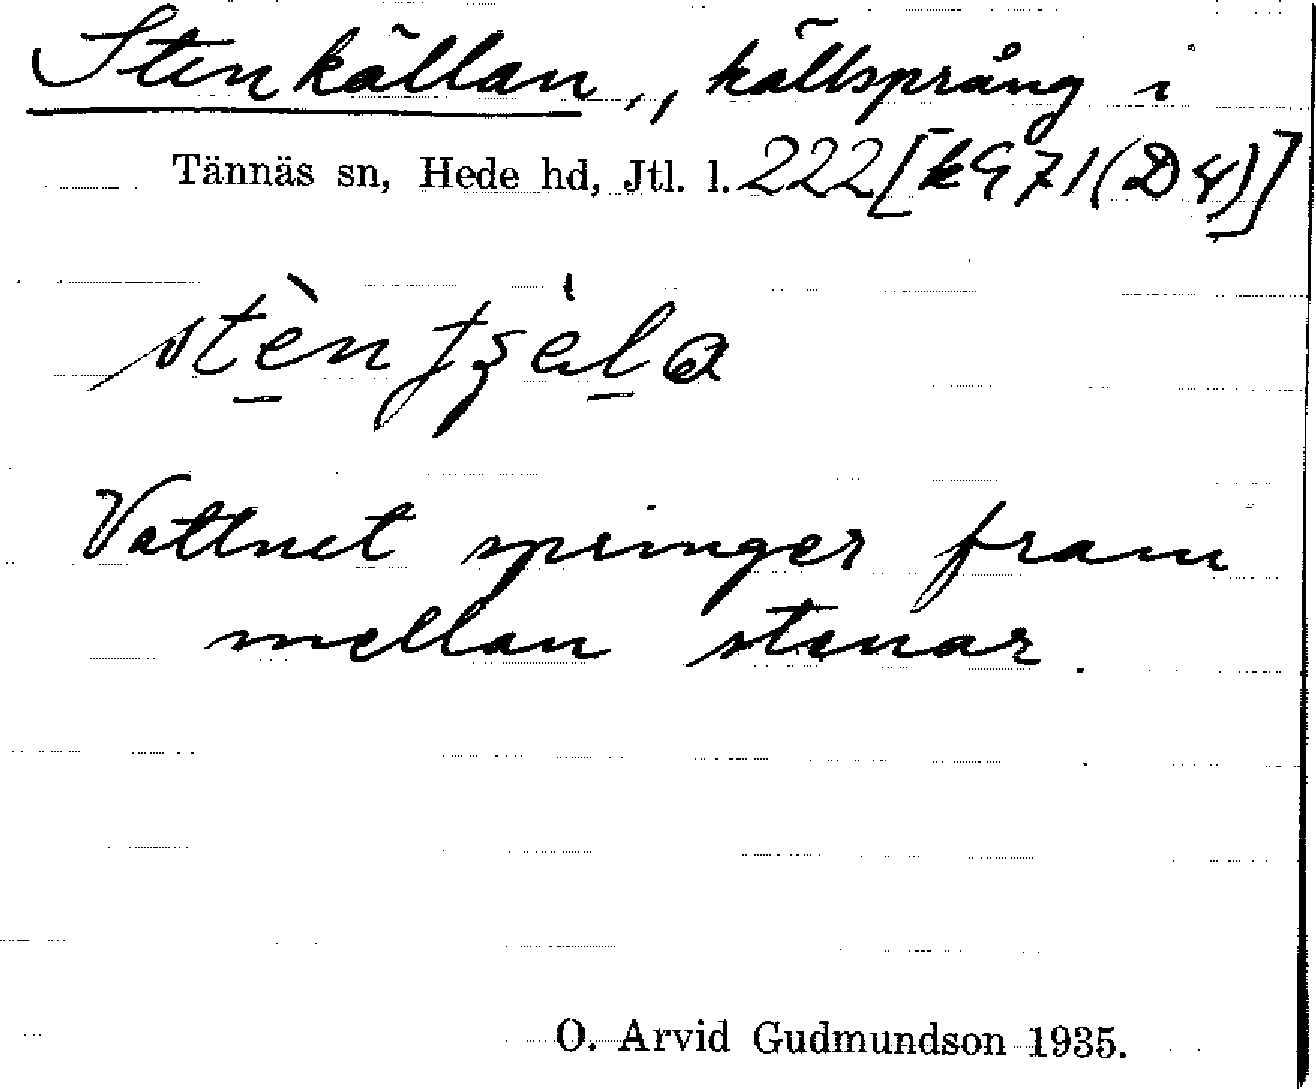 Stenkällan, källsprång i
Tännäs sn, Hede hd, Jtl. l. 222 [k971(D4)]
Vattnet springer fram
mellan stenar.
O. Arvid Gudmundson 1935.